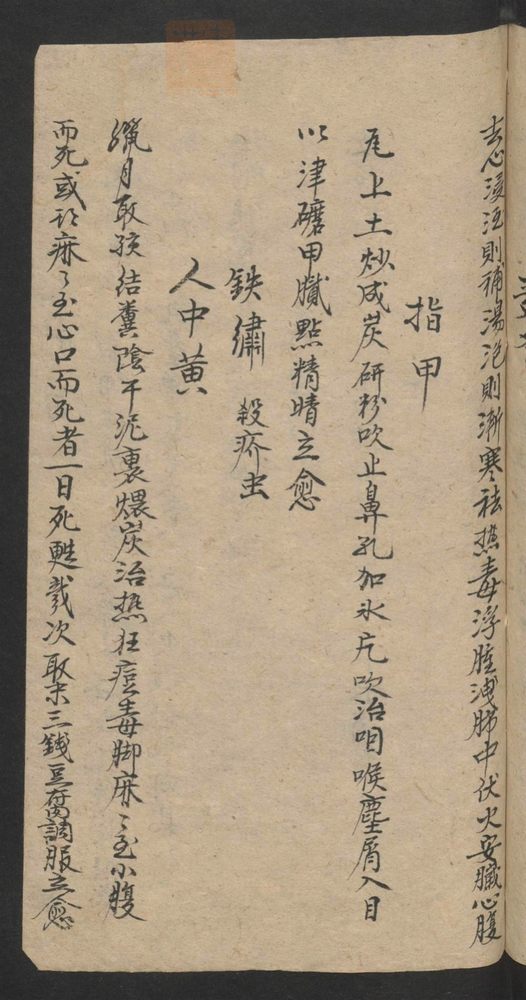 去心浸酒則補湯泡則漸寒祛熱毒浮腫洩肺中伏火安臟心腹
指甲
瓦上土炒成炭研粉吹止鼻孔加氷片吹治咽喉塵屑入目
以津磨甲膩點精睛立愈
鉄繡 殺疥虫
人中黃
臘月取孩結糞陰干泥裹煨炭治熱狂痘毒脚麻〻至小腹
而死或祁麻〻至心口而死者一日死甦幾次取末三錢豆腐調服立愈